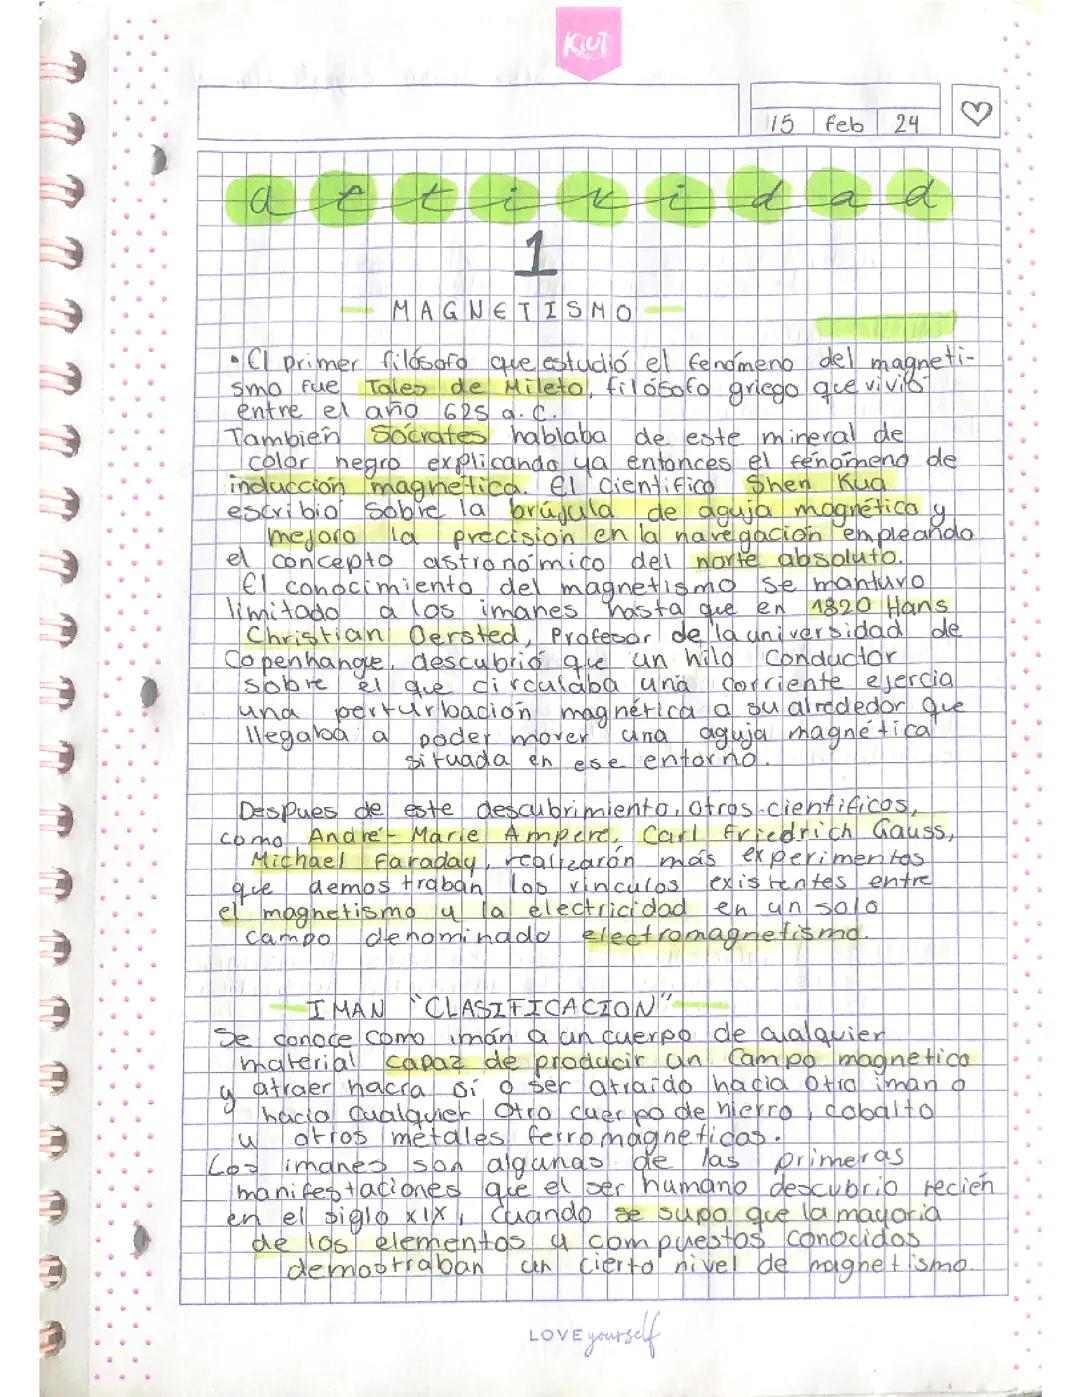 KIUT
15 feb 24
actividad
1
MAGNETISMO
• El primer filósofo que estudió el fenómeno del magneti-
smo fue Tales de Mileto, filósofo griego que vivió
entre el año 625 a.C.
Tambien Sócrates hablaba de este mineral de
color negro explicando ya entonces el fenómeno de
inducción magnetica. El cientifico Shen Kua
escribio sobre la brújula de aguja magnética y
mejoro la precision en la navegación empleando
el concepto astronómico del norte absoluto.
El conocimiento del magnetismo se mantuvo
limitado a los imanes hasta que en 1820 Hans
Christian Oersted, Profesor de la universidad de
Copenhange, descubrió que un hilo conductor
sobre el que circulaba una corriente ejercia
una perturbación magnética a su alrededor que
llegaba a poder mover una aguja magnética
situada en ese entorno.
Despues de este descubrimiento, otros cientificos,
como André-Marie Ampere, Carl Friedrich Gauss,
Michael Faraday, realizarón más experimentos
que demostraban los vinculos existentes entre
el magnetismo y la electricidad en un solo
campo denominado electromagnetismo.
IMAN "CLASIFICACION"
Se conoce como imán a un cuerpo de cualquier
material capaz de producir un campo magnetico
y atraer hacia sí o ser atraido hacia otro iman o
hacia cualquier otro cuerpo de hierro, cobalto
u otros metales ferromagneticos.
Los imanes son algunas de las primeras
manifestaciones que el ser humano descubrio recién
en el siglo XIX, cuando se supo que la mayoria
de los elementos y compuestos conocidos
demostraban un cierto nivel de magnetismo.
LOVE yourself